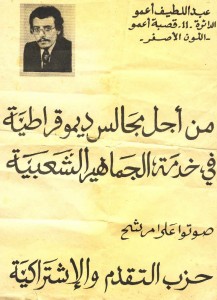 عبد اللطيف أعمو
الدائرة -11- قصبة أعمو
- اللون الأصفر -
من أجل مجالس ديموقراطيّة
في خدمة الجماهير الشعبيّة
صوتوا على مرشح
حزب التقدم والإشتراكيّة